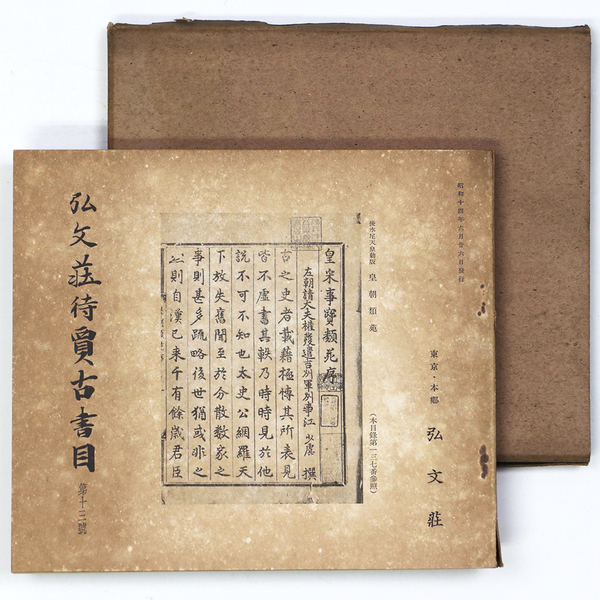 昭和十四年六月廿六日發行
東京・本鄕
弘文莊
後水尾天皇勅版 皇朝類苑
(本目錄第一三七番參照)
皇宋事寶類苑序
左朝請大夫權發遣吉州軍州事江 少虞 撰
古之史者載藉極愽其所表見
皆不虛書其軼乃時時見於他
說不可不知也太史公網羅天
下放失舊聞至於分散數家之
事則甚多疏略後世猶或非之
則自漢已来千有餘歲君臣
弘文莊待賈古書目
第十三號